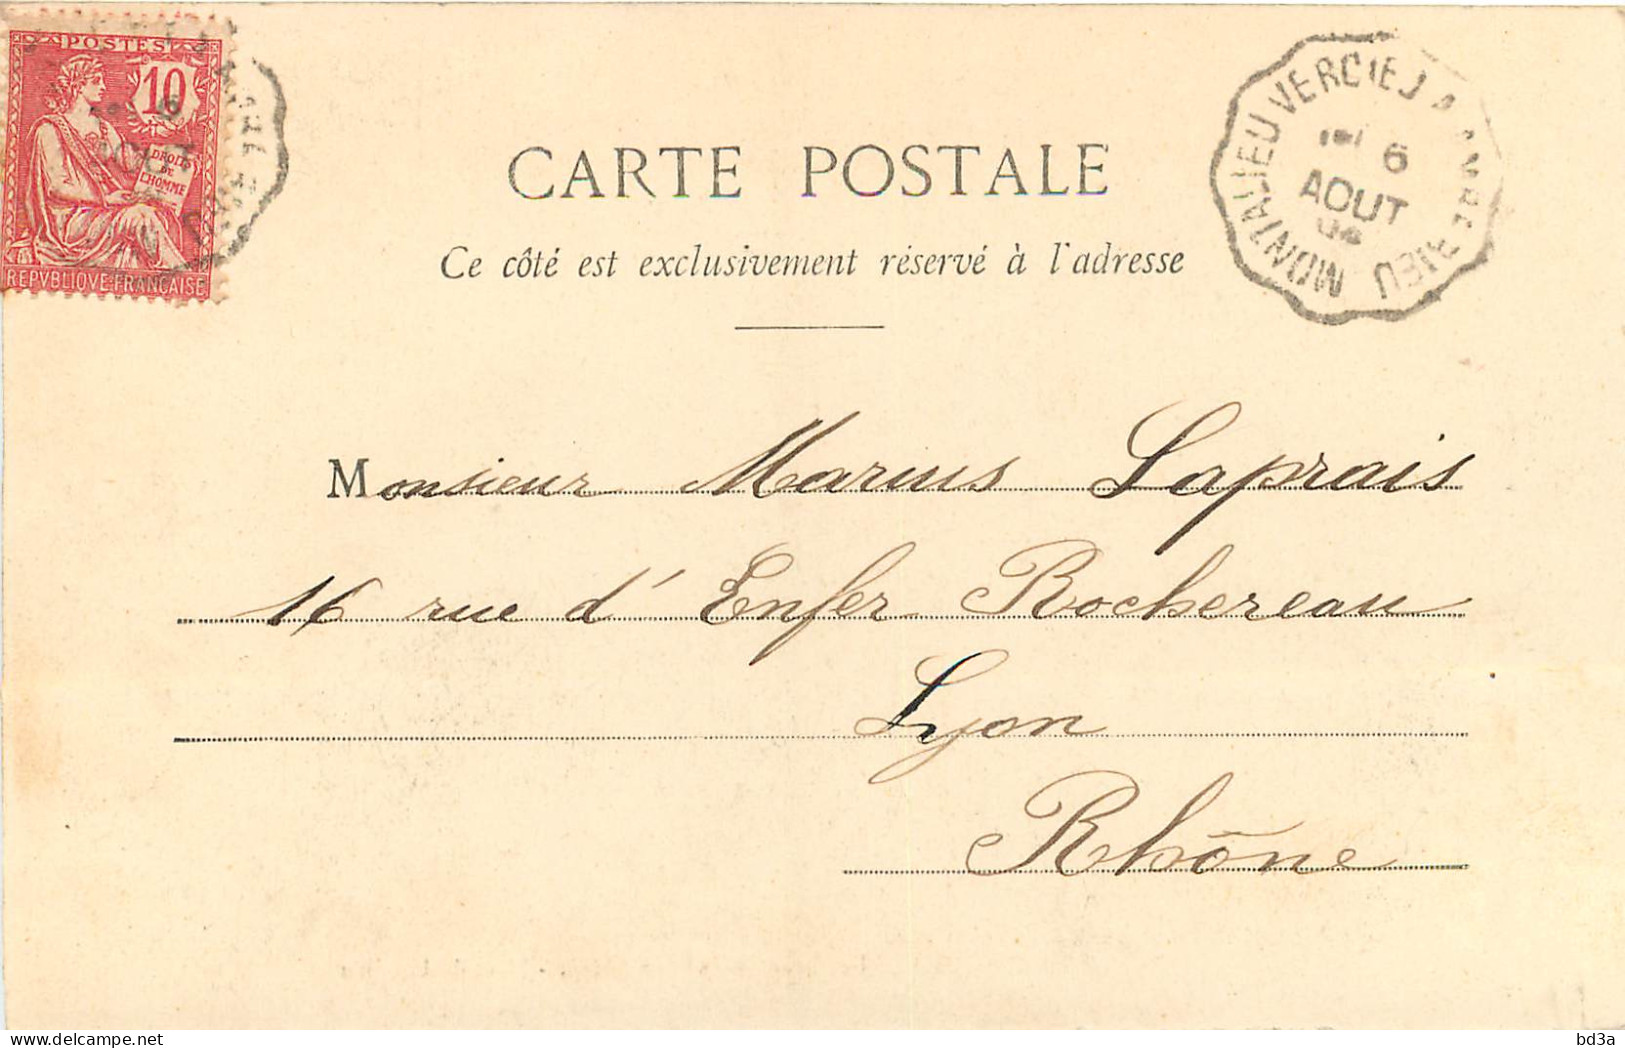 POSTES
10
DROITS
DE
L'HOMME
REPVBLIQVE FRANCAISE
6
AOUT
MONTALIEU VERCIEU A
6
AOUT
04
CARTE POSTALE
Ce côté est exclusivement réservé à l'adresse
Monsieur Marius Laprais
16 rue d'Enfer Rochereau
Lyon
Rhône
bd3a